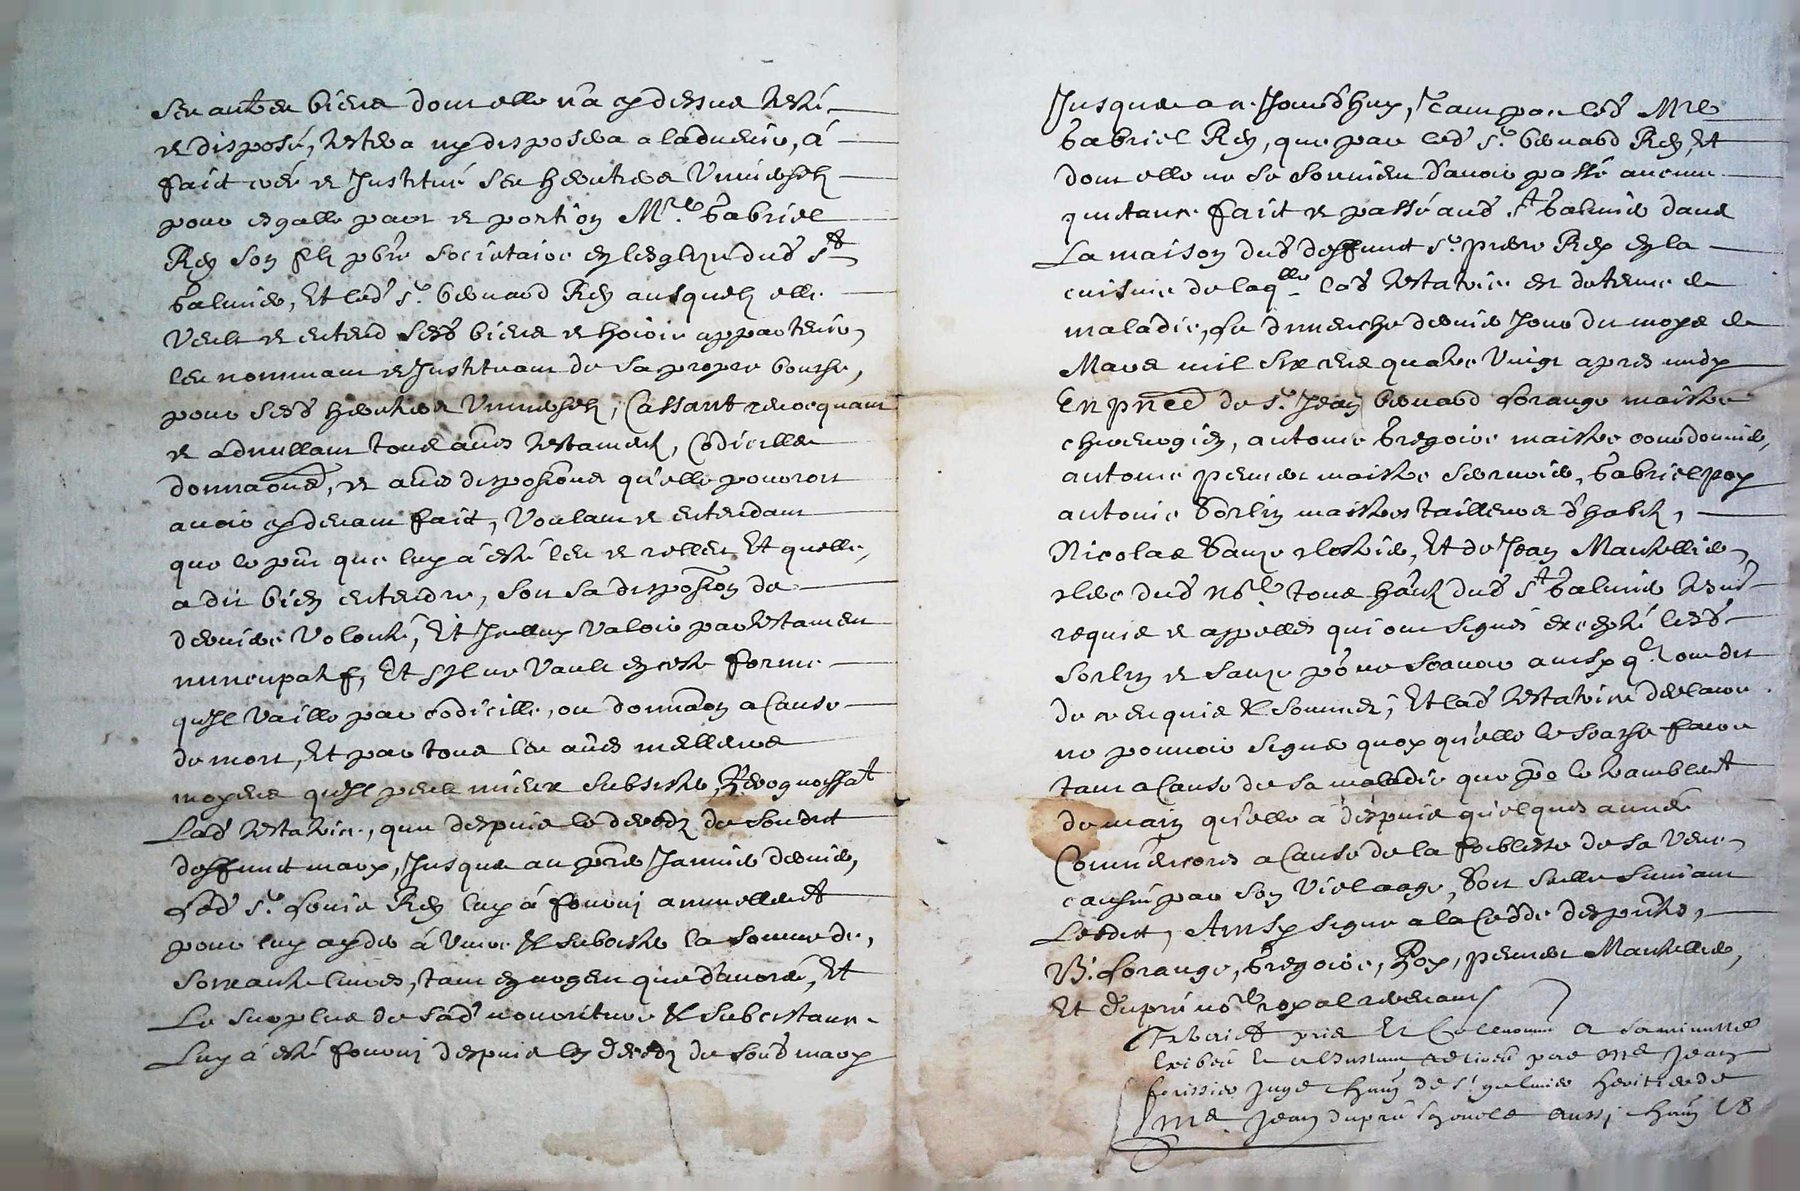 ses autres biens dont elle n'a cy dessus testé
et disposé, testera ny disposera a l'advenir, à
faict créé et Institué ses heritiers Universelz
pour esgalle part et portion Mre Gabriel
Rey son filz pbre societaire en lesglize dud St
Galmier, Et led Sr benard Rey ausquelz elle
Veult et entend sesd biens et hoirie appartenir,
les nommant et Instituant de sa propre bouche,
pour sesd heritiers Universelz, Cassant revocquant
et adnullant tous aues testamentz, Codicilles
donnaons, et aues disposions qu'elle pouvoit
avoir cy devant faict, Voulant et entendant
que le pnt que luy à esté leu et releu Et quelle
a dit bien entendre, soit sa disposion de
derniere Volonté, Et Icelluy Valoir par testament
nuncupatif, Et s'Il ne Vault en ceste forme
qu'Il Vaille par codicille, ou donnaon a Cause
de mort, Et par tous les aues melleurs
moyens qu'Il peult mieux subsister, Recognoissat
Lad testatrice, que despuis le decedz de sondit
deffunct mary, Jusques au pier Janvier dernier,
led Sr Louis Rey luy à fourny annuellemt
pour luy ayder à Vivre & subcister la somme de
soixante livres, tant en argent que danrées, Et
Le surplus de sad nourriture & subcistance
Luy à esté fourny despuis led decedz de sond mary
Jusques a ce Jourd'huy, Tant par led Mre
Gabriel Rey, que par led Sr benard Rey, Et
dont elle ne se souvient d'avoir passé aucune
quitance faict et passé aud St Galmier dans
La maison dud deffunct Sr pierre Rey en la
cuisine de laqlle lad testatrice est detenue de
maladie, le dimenche dernier Jour du moys de
Mars mil six cens quatre Vingt apres midy
En pnce de Sr Jean benard Lorange maistre
chirurgien, antoine Gregoire maistre courdonnier,
antoine perrier maistre serrurier, Gabriel roy
antoine Sorlin maistres tailleurs d'habitz,
Nicolas Sauze clostrier, Et de Jean Mantellier
clerc dud nore tous hantz dud St Galmier tesmis
requis et appellés qui ont signés excepté lesd
Sorlin et Sauze pr ne scavoir ainsy ql ont dit
de ce enquis & sommés; Et lad testatrice declare
ne pouvoir signer quoy qu'elle le scache faire
tant a Cause de sa maladie que pr le tramblemt
de main qu'elle a despuis quelques années
Comme encores a Cause de la foiblesse de sa Veue
causée par son Vielaage, Soit selle suivant
Lesdict, Ainsy signé a la Cedde des pntes,
B. Lorange, Gregoire, Roy, perrier Mantellier,
Et Dupré nore royal recevant
Extraict pris Et Collationné a sa minutte
Exibée et a l'Instant retirée par me Jean
forissier Juge Chain de St galmier heritier de
me Jean dupré